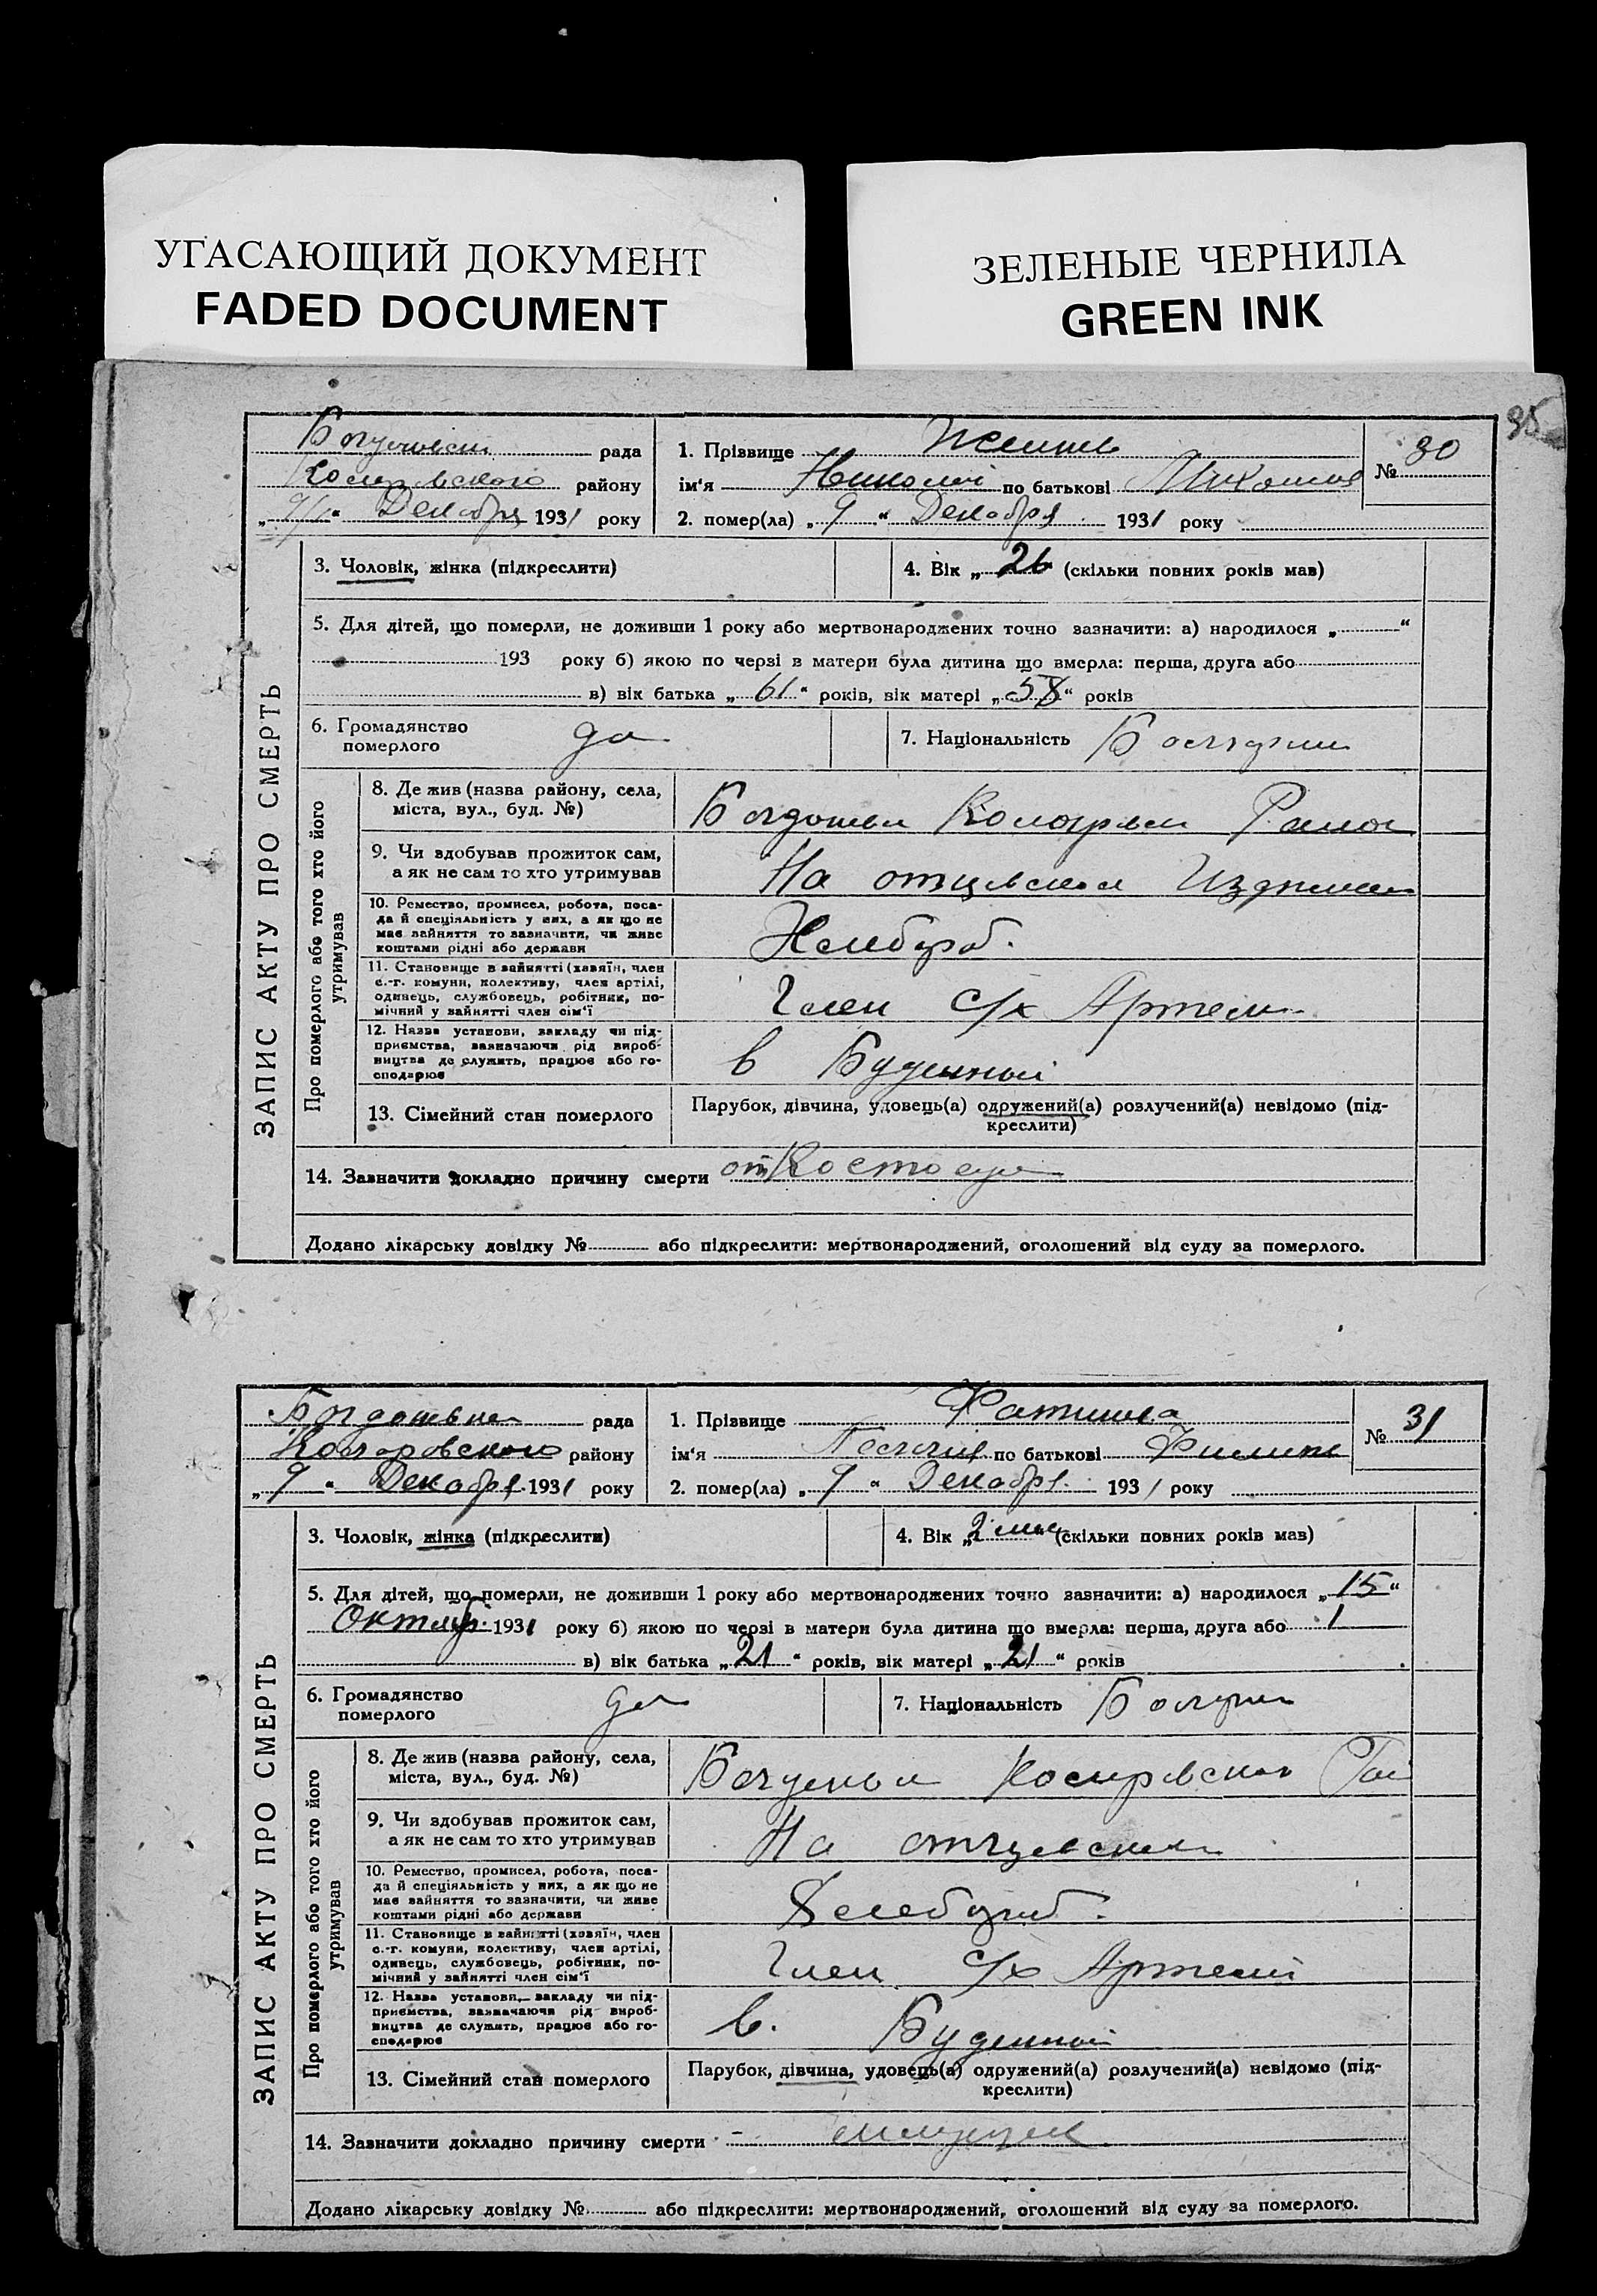 УГАСАЮЩИЙ ДОКУМЕНТ
FADED DOCUMENT
ЗЕЛЕНЫЕ ЧЕРНИЛА
GREEN INK
35
рада
району
Декабря 1931 року
1. Прізвище
ім'я Николай по батькові
2. помер(ла) „ 9 “ Декабря 1931 року
№ 30
ЗАПИС АКТУ ПРО СМЕРТЬ
3. Чоловік, жінка (підкреслити)
4. Вік „ 26 (скільки повних років мав)
5. Для дітей, що померли, не доживши 1 року або мертвонароджених точно зазначити: а) народилося „ “
193 року б) якою по черзі в матери була дитина що вмерла: перша, друга або
в) вік батька „ 61 “ років, вік матері „ 58 “ років
6. Громадянство
померлого
да
7. Національність
Про померлого або того хто його
утримував
8. Де жив (назва району, села,
міста, вул., буд. №)
9. Чи здобував прожиток сам,
а як не сам то хто утримував
На отцовском
10. Ремество, промисел, робота, поса-
да й спеціяльність у них, а як що не
має зайняття то зазначити, чи живе
коштами рідні або держави
Хлебороб.
11. Становище в зайнятті (хазяїн, член
с.-г. комуни, колективу, член артілі,
одинець, службовець, робітник, по-
мічний у зайнятті член сім'ї
Член с/х Артели
12. Назва установи, закладу чи під-
приємства, зазначаючи рід вироб-
ництва де служить, працює або го-
сподарює
в Буденный
13. Сімейний стан померлого
Парубок, дівчина, удовець(а) одружений(а) розлучений(а) невідомо (під-
креслити)
14. Зазначити докладно причину смерти от Костоеда
Додано лікарську довідку № або підкреслити: мертвонароджений, оголошений від суду за померлого.
рада
району
„ 9 “ Декабря 1931 року
1. Прізвище
ім'я по батькові Филипп
2. помер(ла) „ 9 “ Декабря 1931 року
№ 31
ЗАПИС АКТУ ПРО СМЕРТЬ
3. Чоловік, жінка (підкреслити)
4. Вік „ 2 мес (скільки повних років мав)
5. Для дітей, що померли, не доживши 1 року або мертвонароджених точно зазначити: а) народилося „ 15 “
Октяб. 1931 року б) якою по черзі в матери була дитина що вмерла: перша, друга або 1
в) вік батька „ 21 “ років, вік матері „ 21 “ років
6. Громадянство
померлого
да
7. Національність
Про померлого або того хто його
утримував
8. Де жив (назва району, села,
міста, вул., буд. №)
9. Чи здобував прожиток сам,
а як не сам то хто утримував
На отцовском
10. Ремество, промисел, робота, поса-
да й спеціяльність у них, а як що не
має зайняття то зазначити, чи живе
коштами рідні або держави
Хлебороб.
11. Становище в зайнятті (хазяїн, член
с.-г. комуни, колективу, член артілі,
одинець, службовець, робітник, по-
мічний у зайнятті член сім'ї
Член с/х Артели
12. Назва установи, закладу чи під-
приємства, зазначаючи рід вироб-
ництва де служить, працює або го-
сподарює
в. Буденный
13. Сімейний стан померлого
Парубок, дівчина, удовець(а) одружений(а) розлучений(а) невідомо (під-
креслити)
14. Зазначити докладно причину смерти
Додано лікарську довідку № або підкреслити: мертвонароджений, оголошений від суду за померлого.